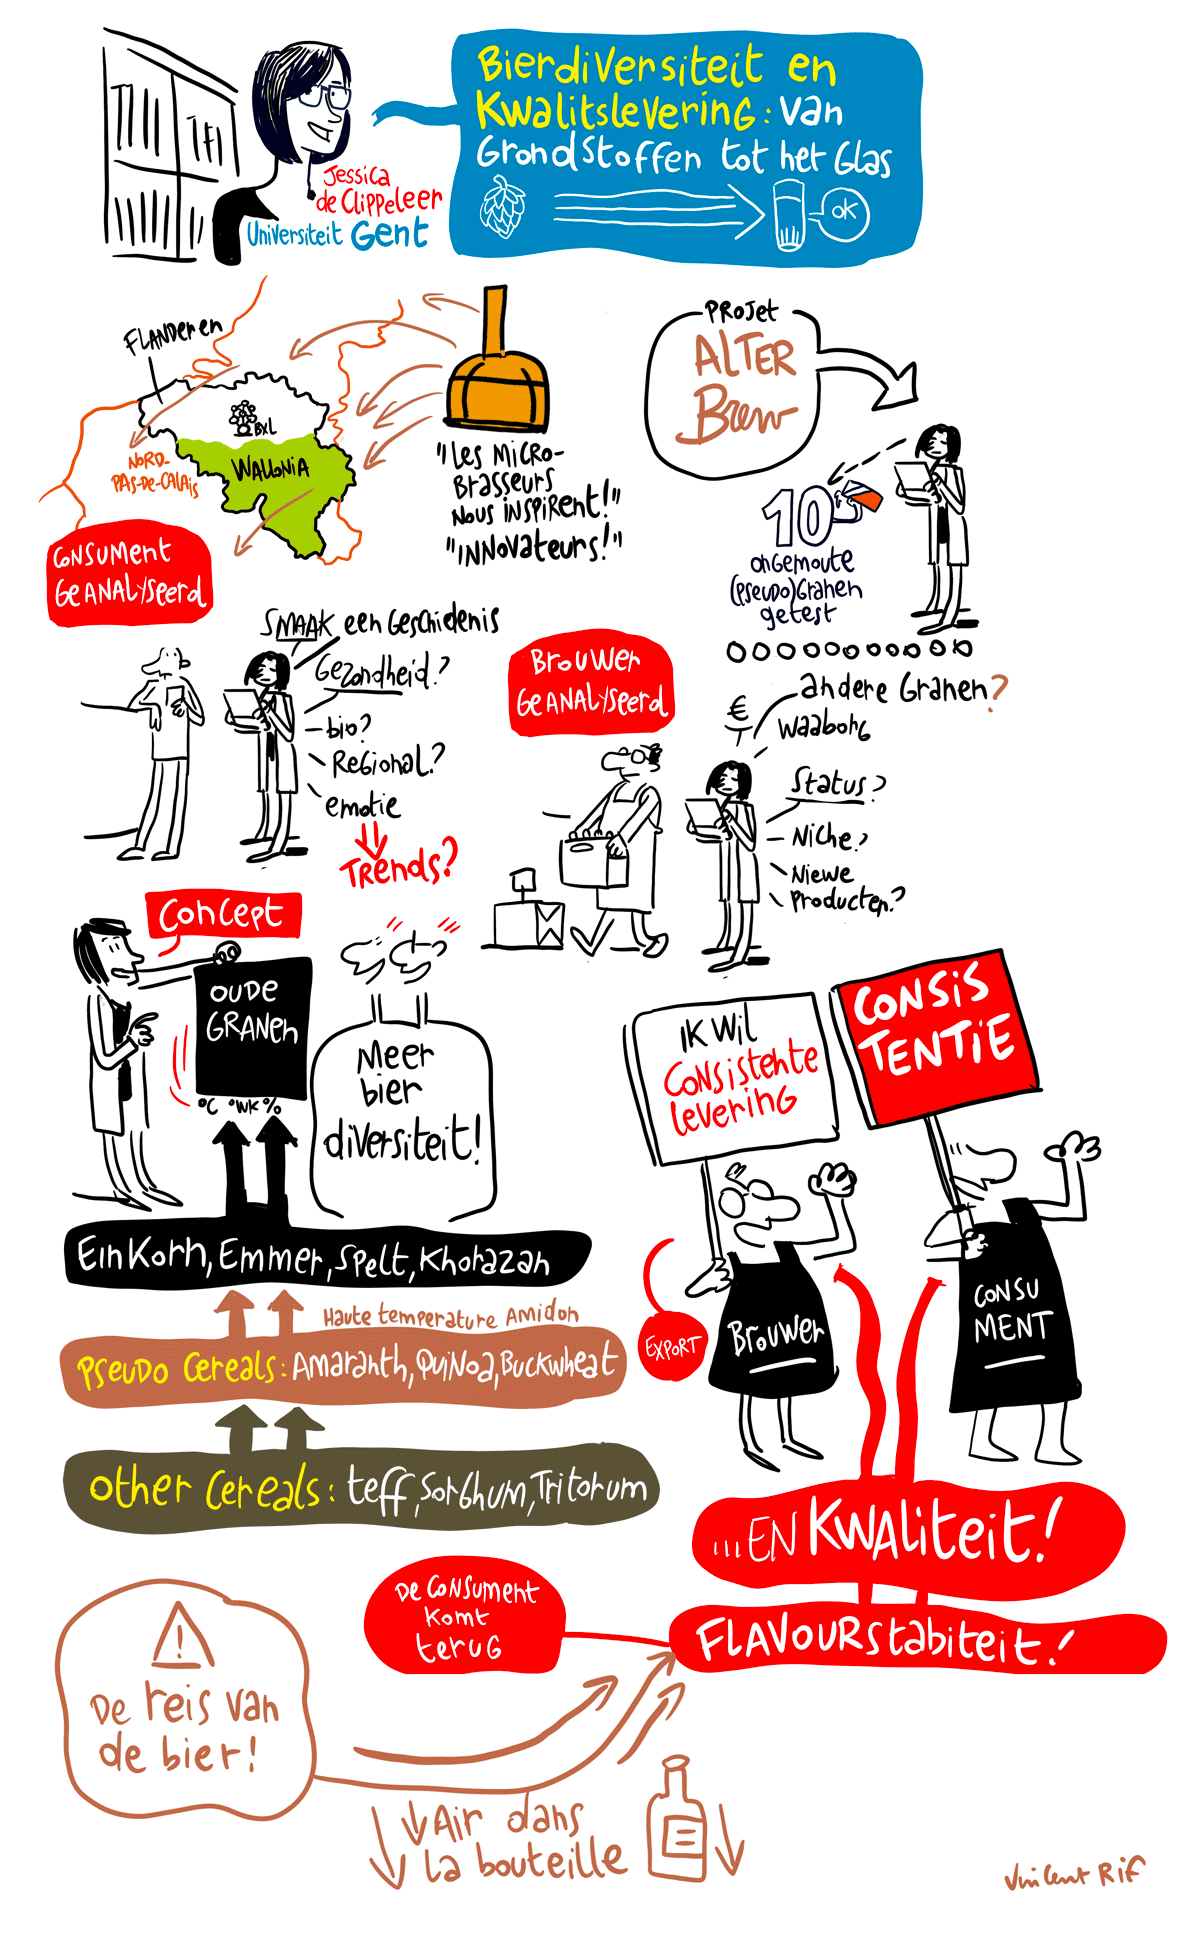 Bierdiversiteit en
Kwalitslevering: van
Grondstoffen tot het Glas
OK
Jessica
de Clippeleer
Universiteit Gent
Flanderen
BXL
Wallonia
Nord-
Pas-de-Calais
"Les micro-
brasseurs
nous inspirent!"
"Innovateurs!"
Projet
Alter
Brew
10
ongemoute
(pseudo)Granen
getest
Consument
Geanalyseerd
Smaak een Geschidenis
Gezondheid?
bio?
Regional?
emotie
Trends?
Brouwer
Geanalyseerd
andere Granen?
€
Waaborg
Status?
Niche?
Niewe
Producten?
Concept
Oude
Granen
°C °WK %
Meer
bier
diversiteit!
Einkorn, Emmer, Spelt, Khorazan
Haute temperature Amidon
Pseudo Cereals: Amaranth, Quinoa, Buckwheat
Other Cereals: teff, Sorghum, Tritorum
Ik wil
Consistente
levering
Consis
tentie
Export
Brouwer
Consu
ment
...en Kwaliteit!
De Consument
Komt
terug
Flavourstabiteit!
!
De reis van
de bier!
Air dans
la bouteille
Vincent Rif